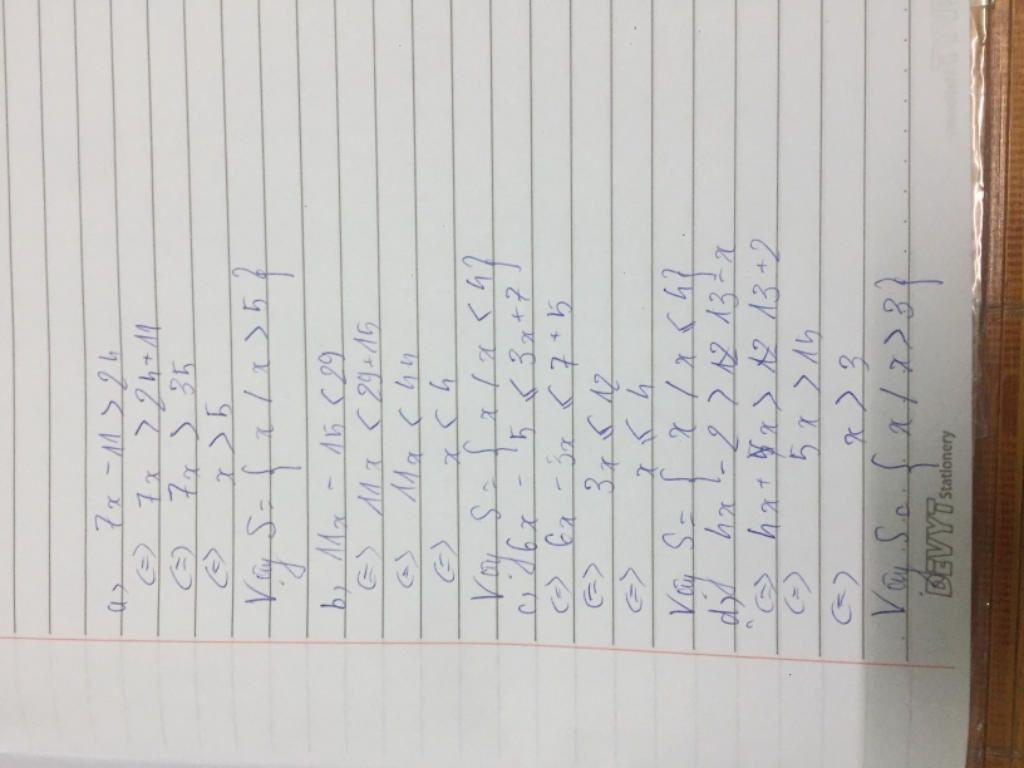 a) 7x - 11 > 24
<=> 7x > 24 + 11
<=> 7x > 35
<=> x > 5
Vậy S = { x / x > 5 }
b) 11x - 15 < 29
<=> 11x < 29 + 15
<=> 11x < 44
<=> x < 4
Vậy S = { x / x < 4 }
c) 6x - 5 ≤ 3x + 7
<=> 6x - 3x ≤ 7 + 5
<=> 3x ≤ 12
<=> x ≤ 4
Vậy S = { x / x ≤ 4 }
d) 4x - 2 > 13 - x
<=> 4x + x > 13 + 2
<=> 5x > 15
<=> x > 3
Vậy S = { x / x > 3 }
DEVYT stationery